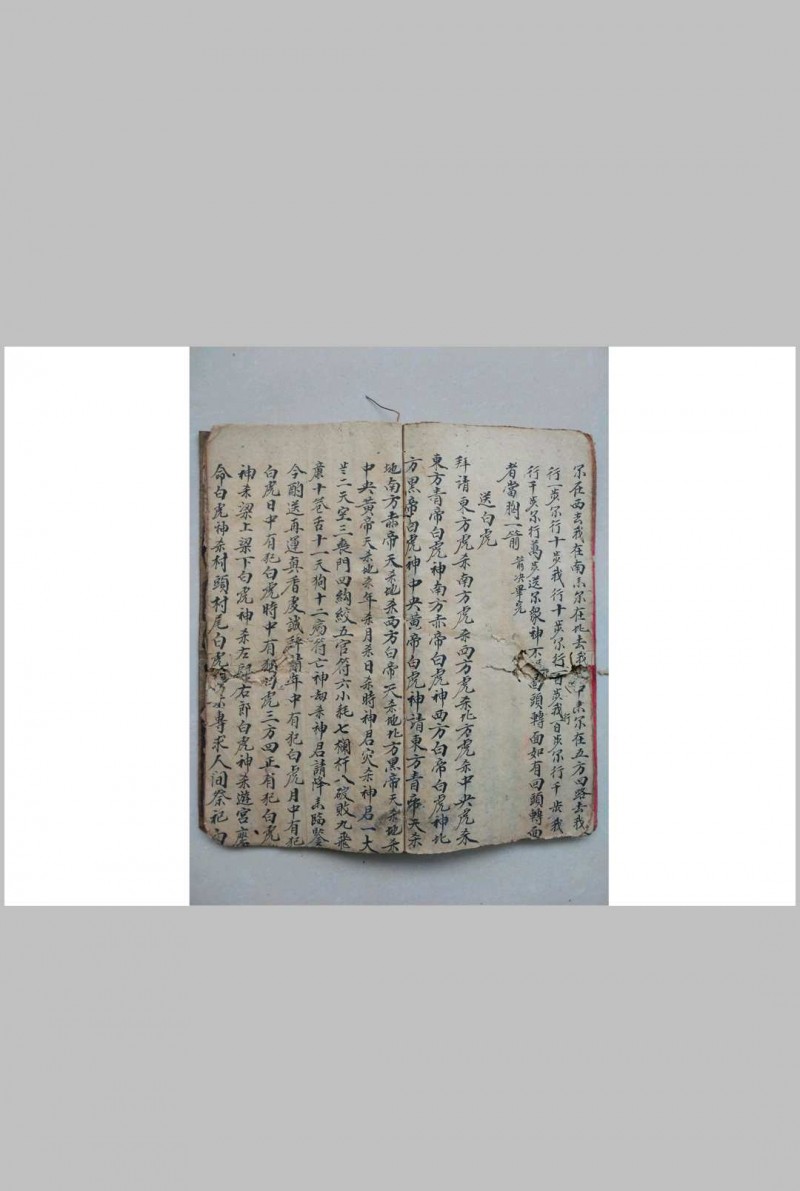 尔在西去我在南去尔在北去我中去尔在五方四路去我
行一步尔行十步我行十步尔行百步我行百步尔行千步我
行千步尔行萬步送尔象神不回頭轉面如有回頭轉面
者當胸一箭 箭决畢完
送白虎
拜請東方虎杀南方虎杀西方虎杀北方虎杀中央虎杀
東方青帝白虎神南方赤帝白虎神西方白帝白虎神北
方黑帝白虎神中央黃帝白虎神請東方青帝天杀
地南方赤帝天杀地杀西方白帝天杀地北方黑帝天杀地杀
中央黃帝天杀地杀年杀月杀日杀時神君灾杀神君一大
耗二天空三喪門四綯絞五官符六小耗七欄杆八破敗九飛
廉十卷舌十一天狗十二病符亡神劫杀神君請降来臨鑒
今酌送再運真香虔誠拜請年中有犯白虎月中有犯
白虎日中有犯白虎時中有犯白虎三方四正有犯白虎
神杀梁上梁下白虎神杀左右郎白虎神杀遊宮
命白虎神杀村頭村尾白虎專求人间祭祀